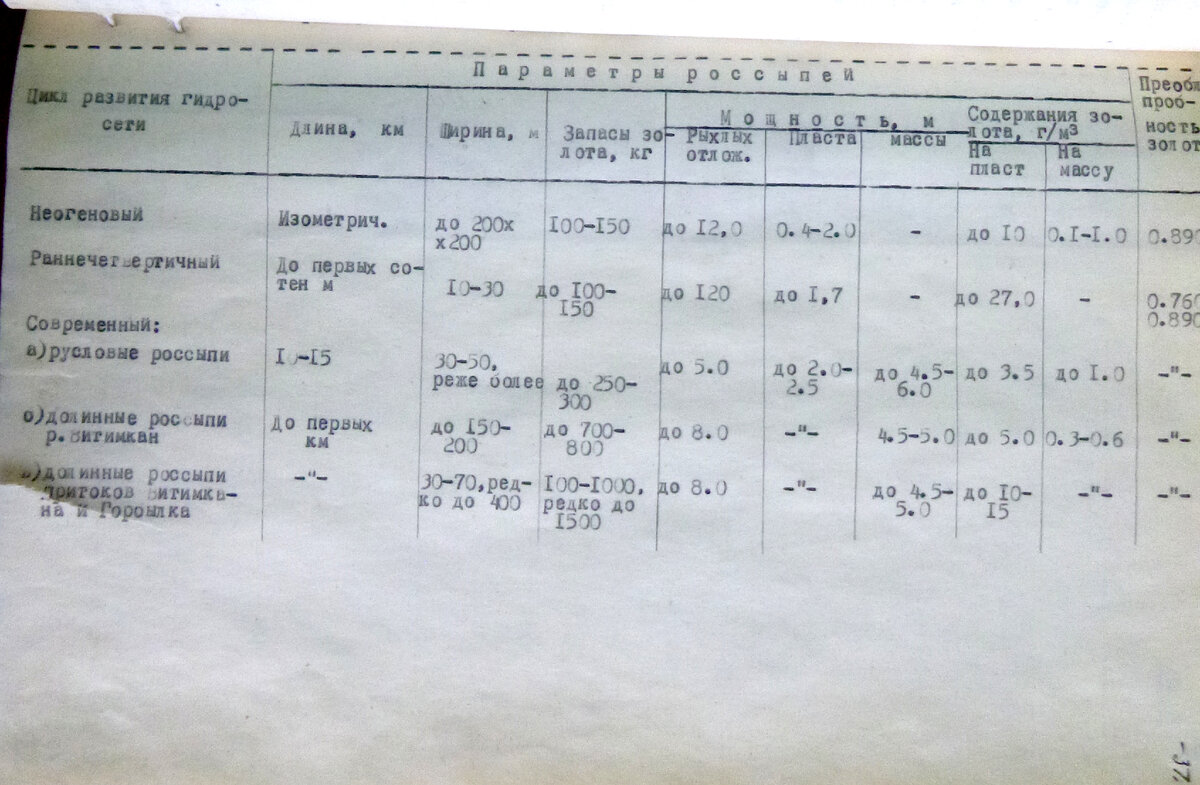 Параметры россыпей
Цикл развития гидро-
сети
Длина, км
Ширина, м
Запасы зо-
лота, кг
Мощность, м
Рыхлых
отлож.
Пласта
массы
Содержания зо-
лота, г/м³
На
пласт
На
массу
Преобл
проб-
ность
золот
Неогеновый
Изометрич.
до 200х
х200
100-150
до 12,0
0.4-2.0
-
до 10
0.1-1.0
0.890
Раннечетвертичный
До первых со-
тен м
10-30
до 100-
150
до 120
до 1,7
-
до 27,0
-
0.760
0.890
Современный:
а)русловые россыпи
10-15
30-50,
реже более
до 250-
300
до 5.0
до 2.0-
2.5
до 4.5-
6.0
до 3.5
до 1.0
-"-
б)долинные россыпи
р.Витимкан
До первых
км
до 150-
200
до 700-
800
до 8.0
-"-
4.5-5.0
до 5.0
0.3-0.6
-"-
в)долинные россыпи
притоков Витимка-
на и Горбылка
-"-
30-70,ред-
ко до 400
100-1000,
редко до
1500
до 8.0
-"-
до 4.5-
5.0
до 10-
15
-"-
-"-
-37